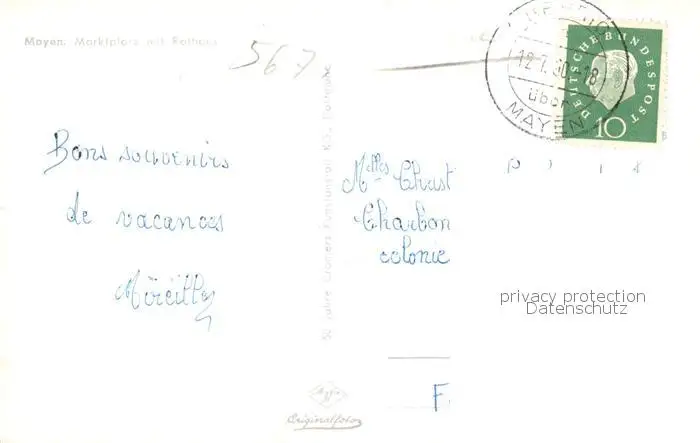 Mayen. Marktplatz mit Rathaus
567
12.7.60-18
über
MAYEN
DEUTSCHE BUNDESPOST
10
Bons souvenirs
de vacances
Mireille
Melles Christ
Charbon
colonie
F
50 Jahre Cramers Kunstanstalt KG, Dortmund
privacy protection
Datenschutz
Agfa
Originalfoto